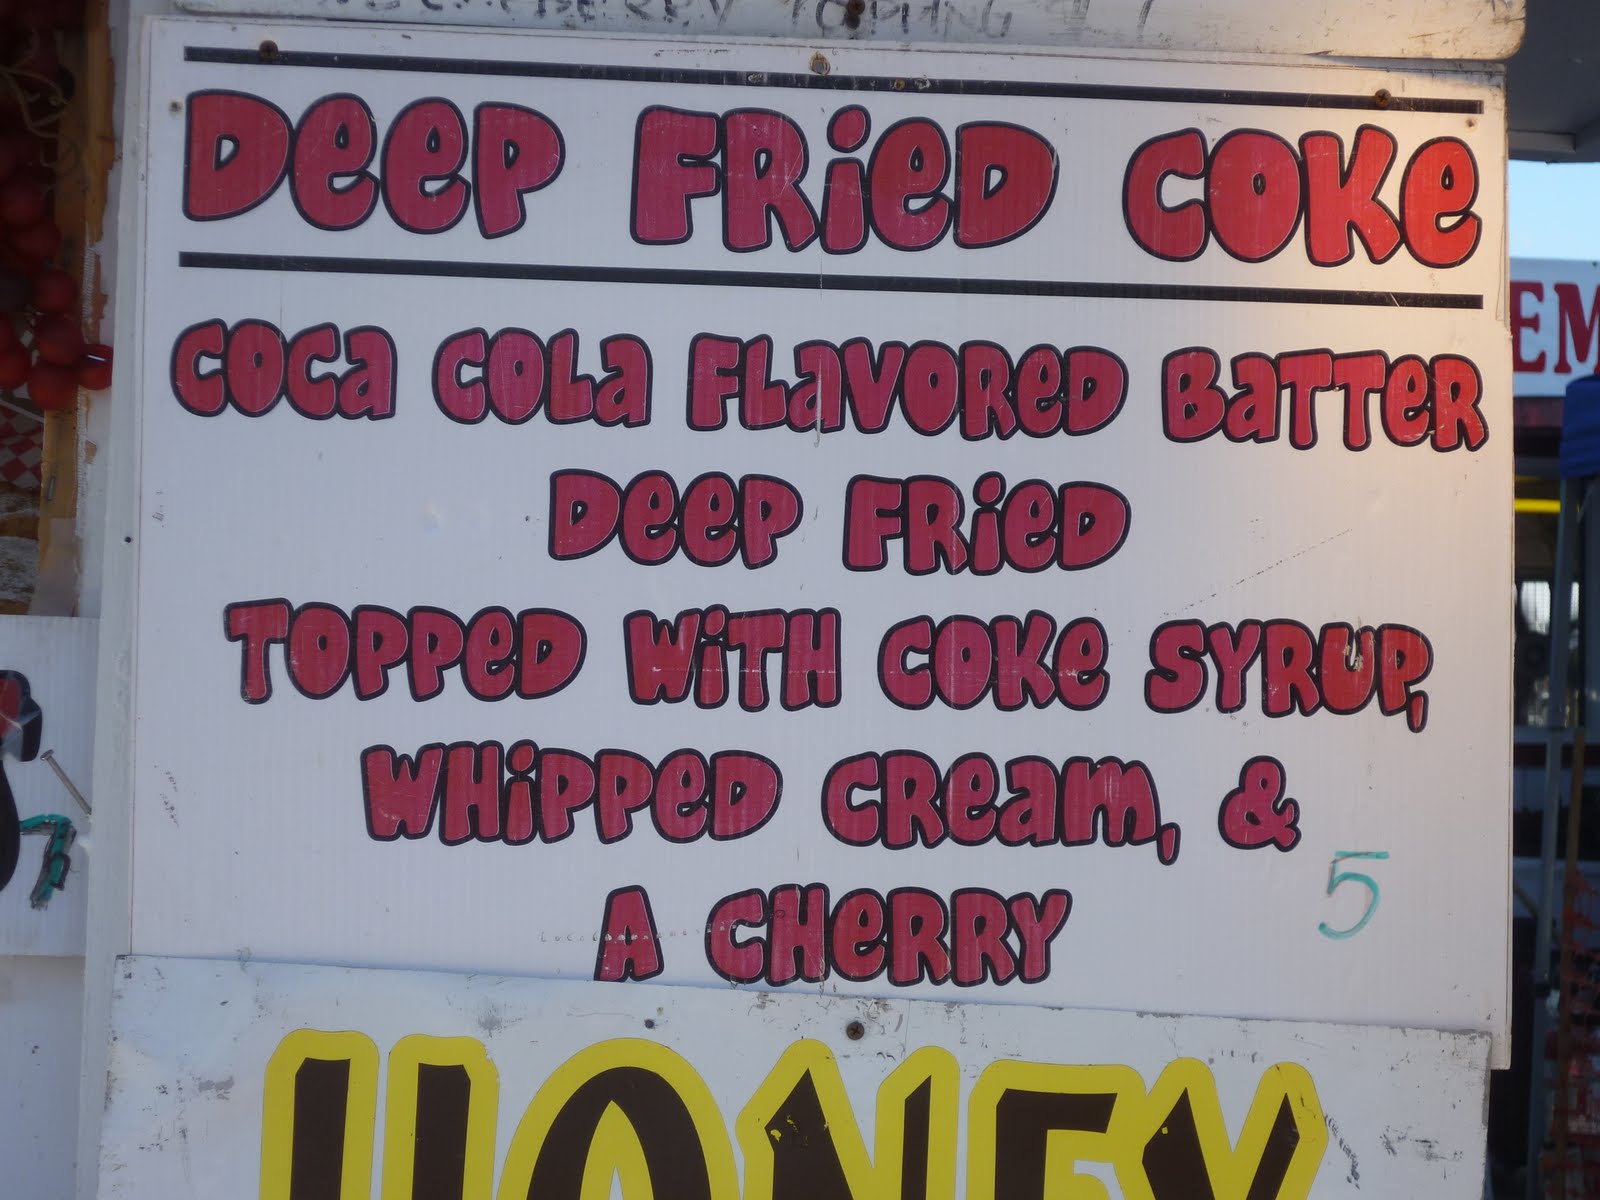 TOPPING
DeeP FRieD COKe
COCa COLa FLaVOReD BaTTeR
DeeP FRieD
TOPPeD WiTH COKe SYRUP,
WHiPPeD CReam, &
A CHeRRY
5
7
EM
HONEY